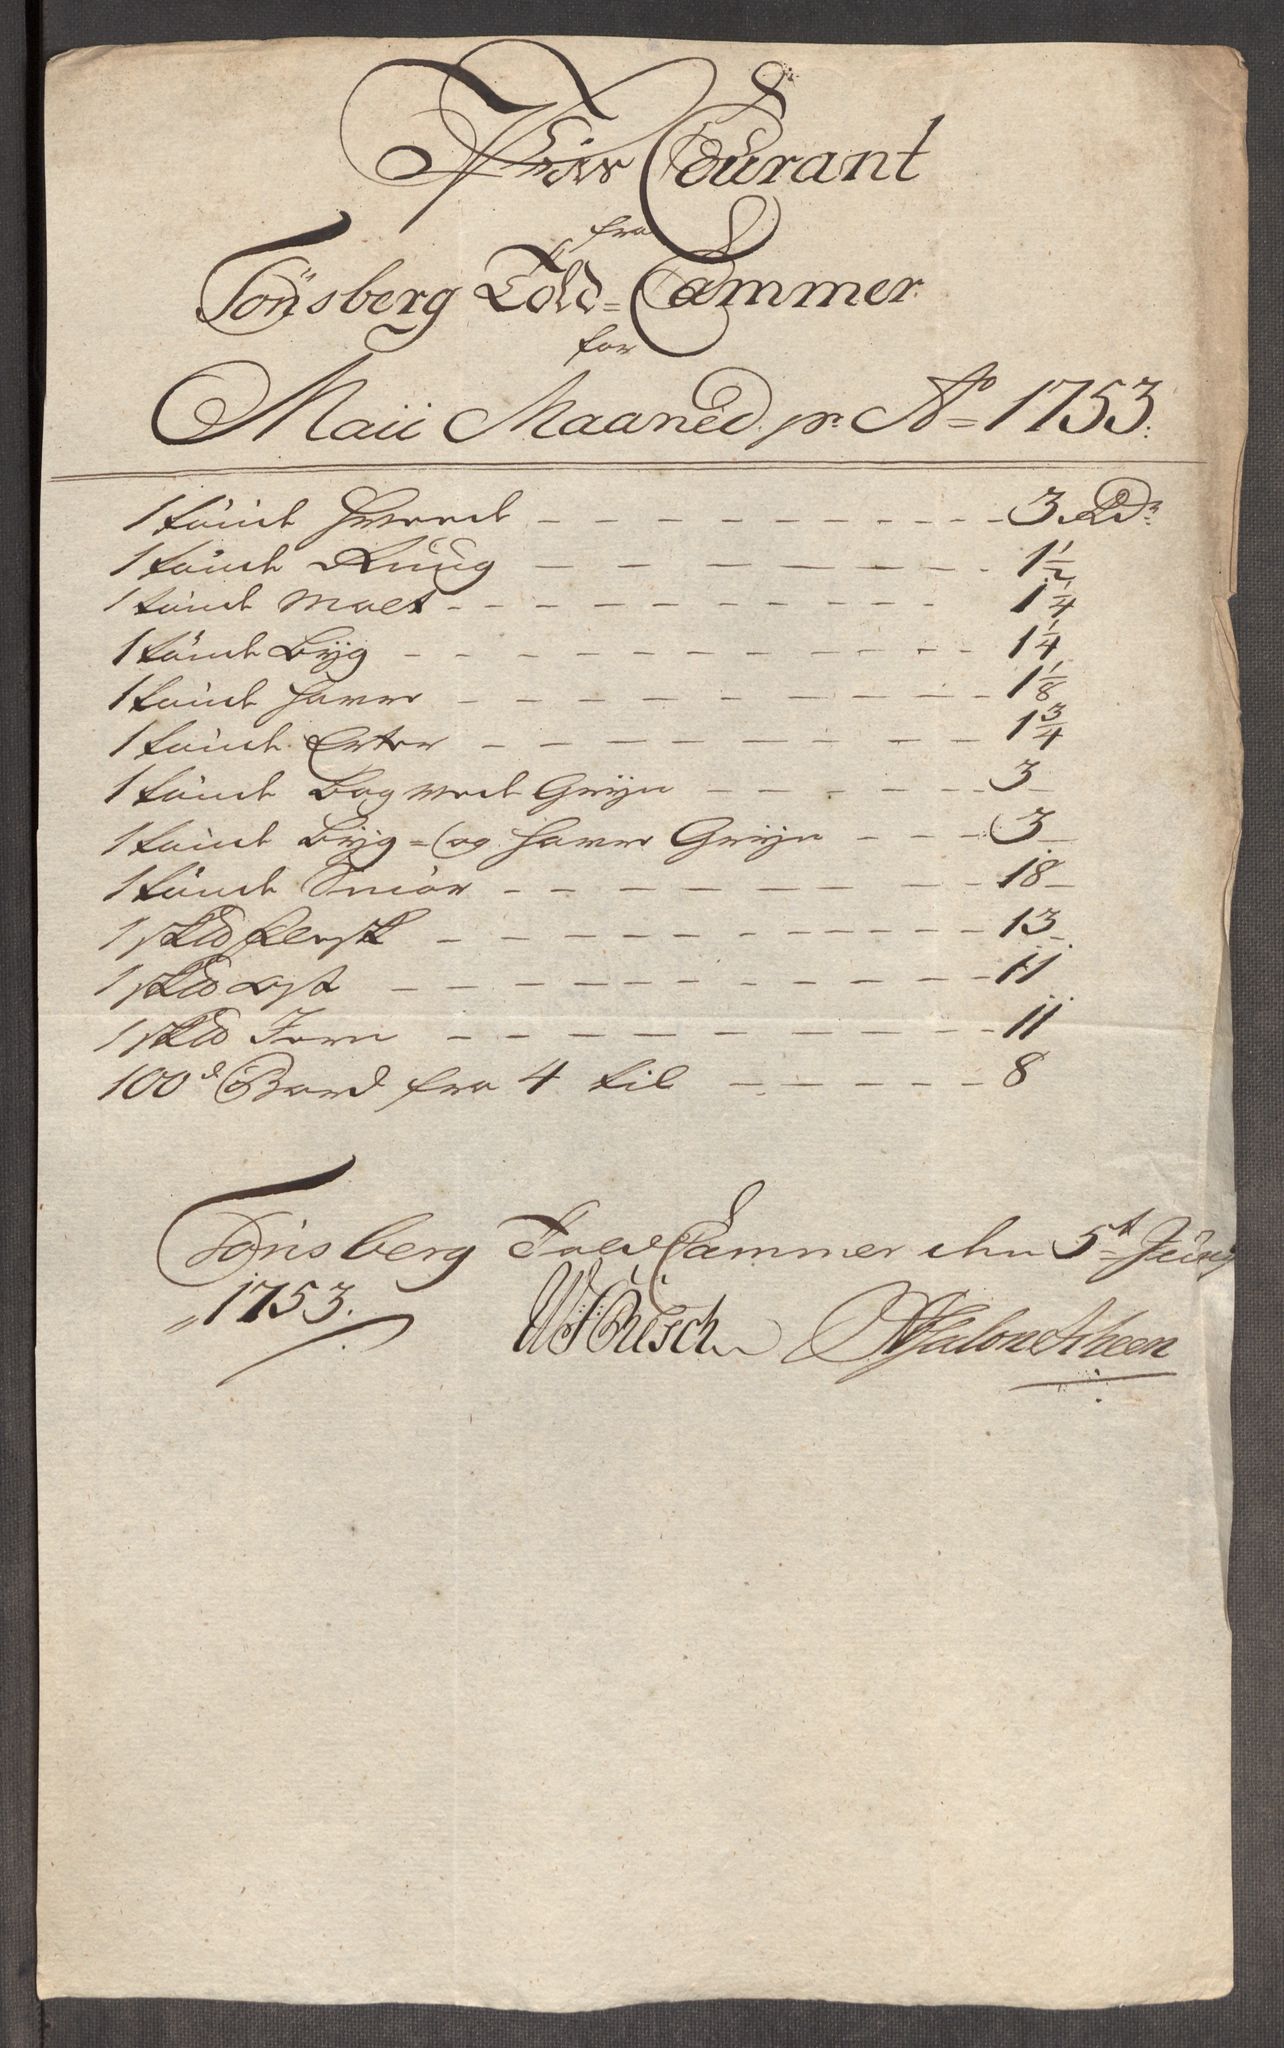 Priis Courant
fra
Tönsberg Told-Cammer
for
Maii Maaned pr. Ao 1753.
1 tönde Hveede - - - 3 Rdr
1 tönde Rüüg - - - 1 1/2
1 tönde Malt - - - 1 1/4
1 tönde Bÿg - - - 1 1/4
1 tönde Havre - - - 1 1/8
1 tönde Erter - - - 1 3/4
1 tönde Boghvede Grÿn - - - 3
1 tönde Bÿg- og Havre Grÿn - - - 3
1 tönde Smör - - - 18
1 skld Flesk - - - 13
1 skld Ost - - - 11
1 skld Jern - - - 11
100d Bord fra 4 til - - - 8
Tönsberg Told Cammer den 5t Junÿ
1753.